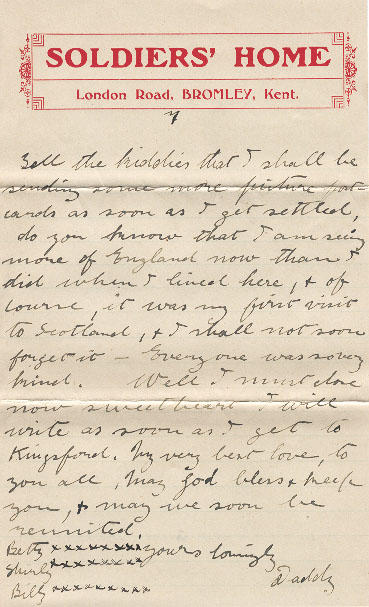 SOLDIERS' HOME
London Road, BROMLEY, Kent.
7
Tell the kiddies that I shall be
sending some more picture post
cards as soon as I get settled,
do you know that I am seeing
more of England now than I
did when I lived here, & of
course, it was my first visit
to Scotland, & I shall not soon
forget it - Every one was so very
kind. Well I must close
now sweetheart I will
write as soon as I get to
Kingsford. My very best love, to
you all, May God bless & keep
you, & may we soon be
reunited.
Betty xxxxxxxxx yours lovingly
Shirly xxxxxxxxx
Daddy
Billy xxxxxxxxx